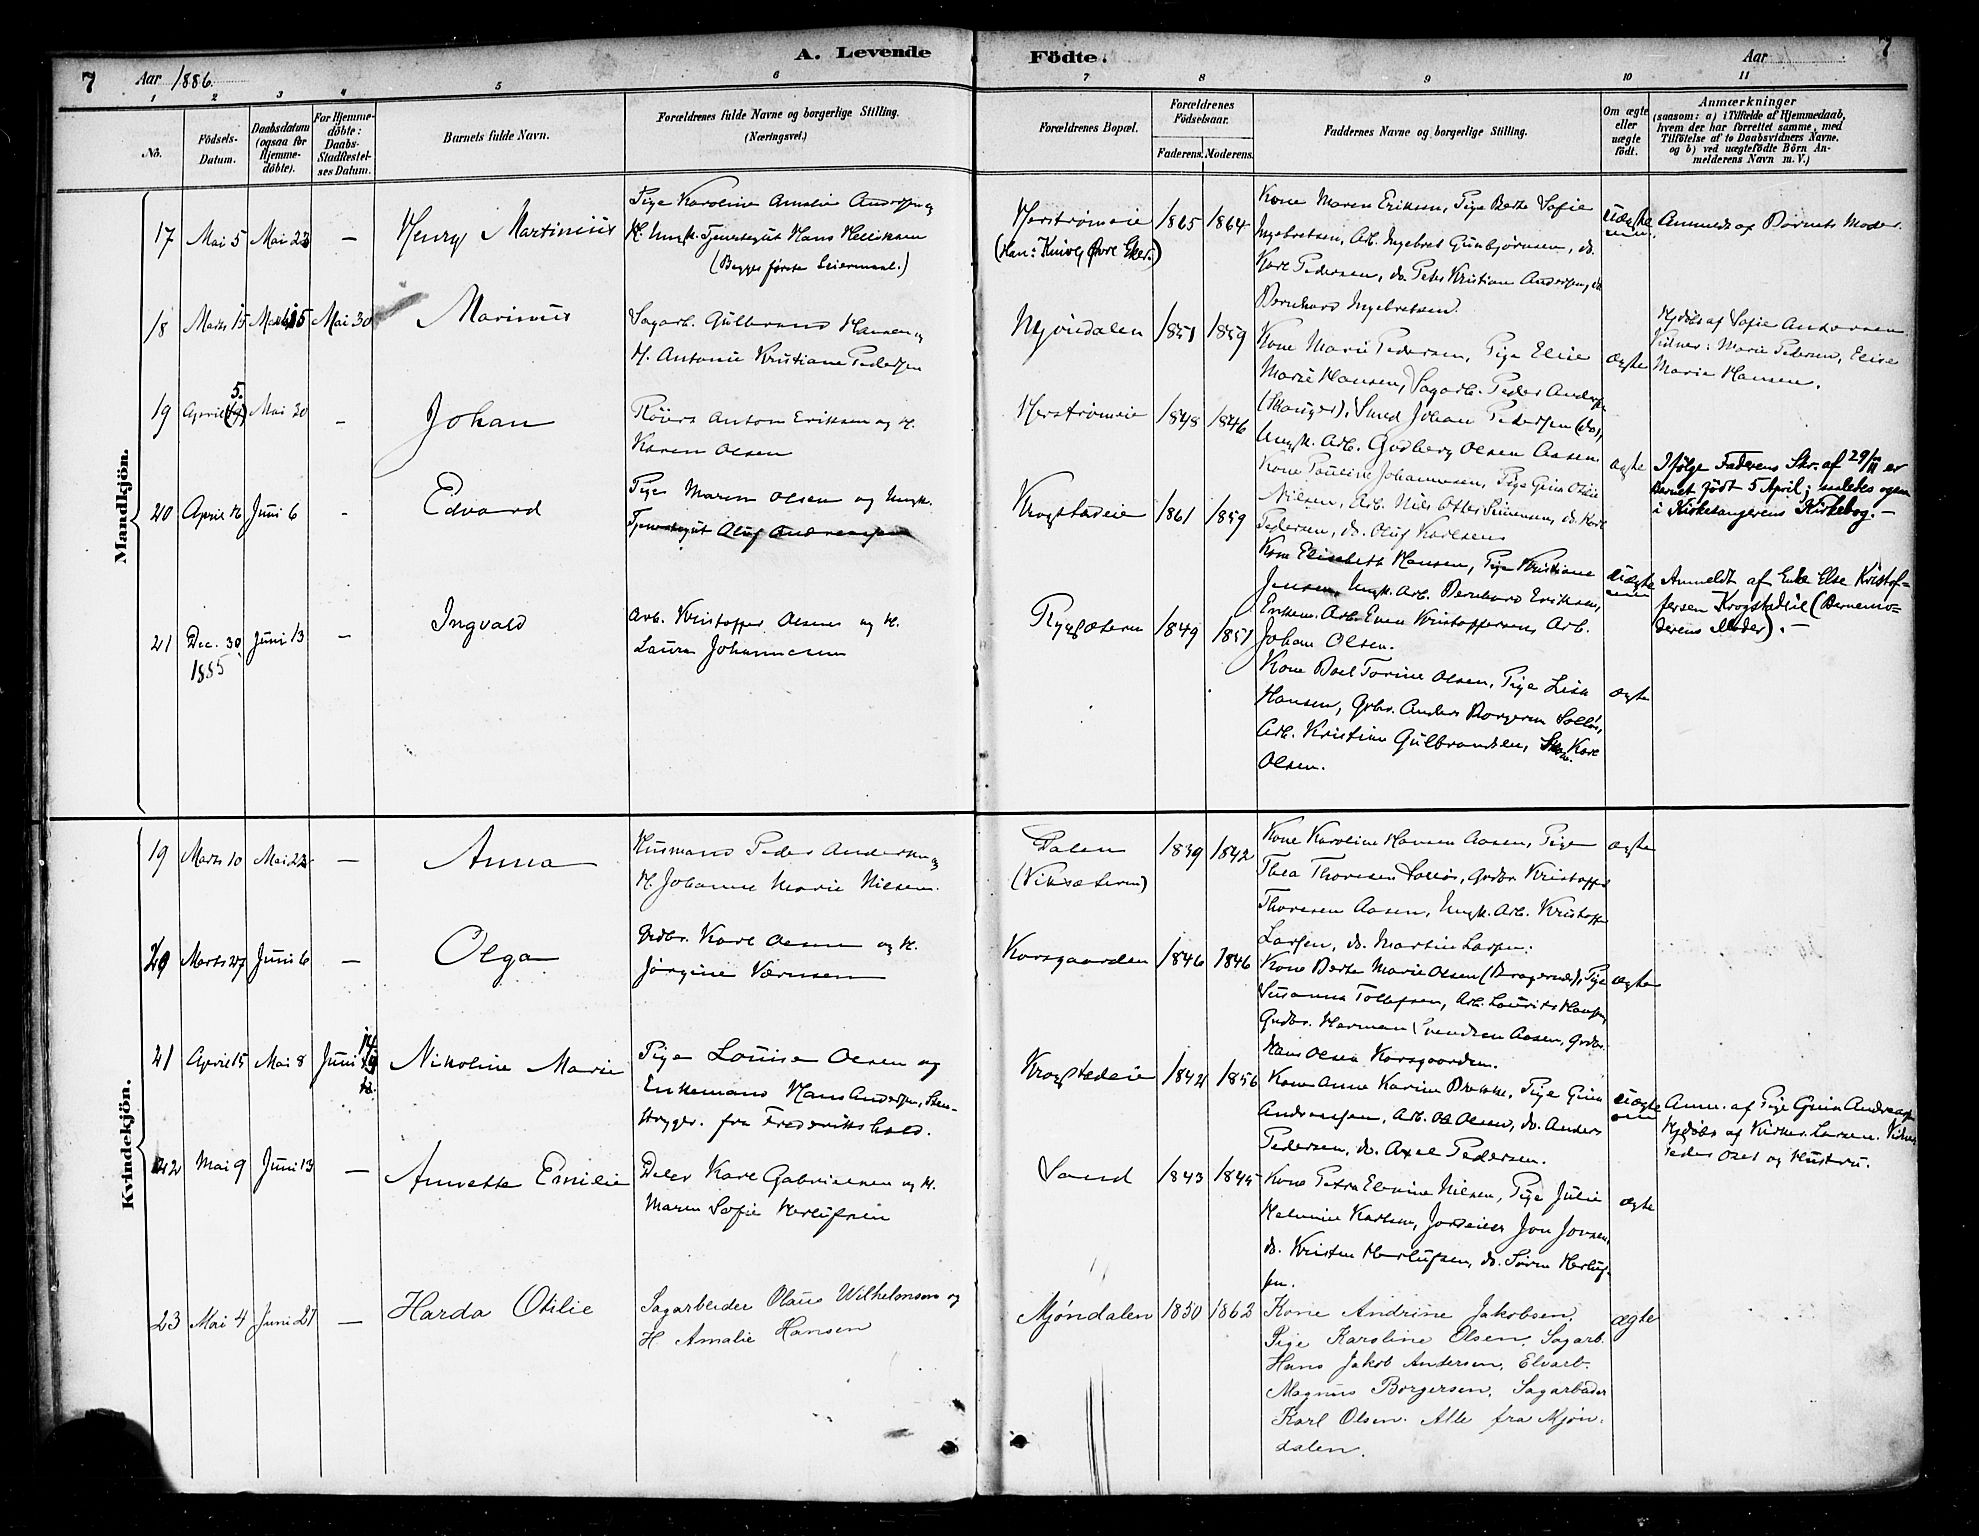 7
Aar 1886.
A. Levende
Födte.
Aar
7
1
2
3
4
5
6
7
8
9
10
11
No.
Födsels-
Datum.
Daabsdatum
(ogsaa for
Hjemme-
döbte).
For Hjemme-
döbte:
Daabs-
Stadfæstel-
ses Datum.
Barnets fulde Navn.
Forældrenes fulde Navne og borgerlige Stilling.
(Næringsvei.)
Forældrenes Bopæl.
Forældrenes
Födselsaar.
Faderens.
Moderens.
Faddernes Navne og borgerlige Stilling.
Om ægte
eller
uægte
født.
Anmærkninger
(saasom: a) i Tilfælde af Hjemmedaab,
hvem der har forrettet samme, med
Tilföielse af to Daabsvidners Navne,
og b) ved uægtefödte Börn An-
melderens Navn m. V.)
Mandkjön.
17
Mai 5
Mai 23
—
Henry Martinius
Pige Karoline Amalie Andersen og
U. Ungk. Tjenestegut Hans Helliksen
(Begges første Leiermaal.)
Herstrømeie
(Han: Øvre Eker.)
1865
1864
Kone Maren Eriksen, Pige Berte Sofie
Ingebretsen, Arb. Ingebret Gunbjørnsen, do.
Karl Pedersen, do. Peter Kristian Andersen, do
Bernhard Ingebretsen.
uægte
Anmeldt af Barnets Moder.
18
Marts 15
Mai 30
Marinius
Sagarb. Gulbrand Hansen og
H. Antonie Kristiane Pedersen
Mjøndalen
1851
1859
Kone Marie Pedersen, Pige Elise
Marie Hansen, Sagarb. Peder Andersen
(Stanger), Smed Johan Pedersen (do),
Ungk. Arb. Gudberg Olsen Aasen
ægte
Hjdøbt af Sofie Andersen
Vidner: Marie Pedersen, Elise
Marie Hansen.
19
5.
April
Mai 20
-
Johan
Anton Eriksen og H.
Karen Olsen
Herstrømeie
1848
1846
Kone Pauline Johannesen, Pige Gina Otilie
Nilsen, Arb. Nils Otto Simensen, do. Karl
Pedersen, do. Oluf Karlsen
ægte
Ifølge Faderens Skr. af 29/ er
Barnet født 5 April; saaledes ogsaa
i Kirkesangerens Kirkebog. -
20
April 16
Juni 6
-
Edvard
Pige Maren Olsen og Ungk.
Tjenestegut Oluf Andreassen
Krogstadeie
1861
1859
Kone Elisabeth Hansen, Pige Kristiane
Jensen, Ungk. Arb. Bernhard Eriksen,
Enkem. Arb. Even Kristoffersen, Arb.
Johan Olsen.
uægte
Anmeldt af Enke Else Kristof-
fersen Krogstadeie (Barnemo-
derens Moder). -
21
Dec. 30
1885
Juni 13
—
Ingvald
Arb. Kristoffer Olsen og H.
Laura Johannesen
Ryggsetern
1849
1851
Kone Boel Torine Olsen, Pige Lise
Hansen, Grbr. Anders Borgersen Solløs,
Arb. Kristian Gulbrandsen, Karl
Olsen.
ægte
Kvindekjön.
19
Marts 10
Mai 23
—
Anna
Husmand Peder Andersen og
H. Johanne Marie Nilsen.
Dalen
(Viksæteren)
1839
1842
Kone Karoline Hansen Aasen, Pige
Thea Thoresen Solløs, Grdbr. Kristoffer
Thoresen Aasen, Ungk. Arb. Kristoffer
Larsen, do. Martin Larsen.
ægte
20
Marts 27
Juni 6
—
Olga
Grdbr. Karl Olsen og H.
Jørgine Værnsen
Korsgaarden
1846
1846
Kone Berte Marie Olsen (Bragernes), Pige
Susanna Tollefsen, Arb. Laurits Hansen,
Grdbr. Herman Svendsen Aasen, Grdbr.
Hans Olsen Korsgaarden.
ægte
21
April 15
Mai 8
Juni 14
Nikoline Marie
Pige Louise Olsen og
Enkemand Hans Andersen, Sten-
hugger. fra Frederikshald.
Krogstadeie
1842
1856
Kone Anne Karine Brekke, Pige Gina
Andreassen, Arb. Ole Olsen, do. Anders
Pedersen, do. Axel Pedersen.
uægte
Anm. af Pige Gina Andreassen
Hjdøbt af Kirkes. Larsen. Vidner
Peder Oset og Hustru.
22
Mai 9
Juni 13
—
Annette Emilie
Karl Gabrielsen og H.
Maren Sofie Herlufsen
Sand
1843
1845
Kone Petra Elevine Nilsen, Pige Julie
Helmine Karlsen, Jordeier Jon Jonsen,
do. Kristen Herlufsen, do. Søren Herluf-
sen.
ægte
23
Mai 4
Juni 27
—
Harda Otilie
Sagarbeider Olaus Wilhelmsen og
H Amalie Hansen
Mjøndalen
1850
1862
Kone Andrine Jakobsen.
Pige Karoline Olsen, Sagarb.
Hans Jakob Andersen, Elvarb.
Magnus Borgersen, Sagarbeider
Karl Olsen. Alle fra Mjøn-
dalen.
ægte